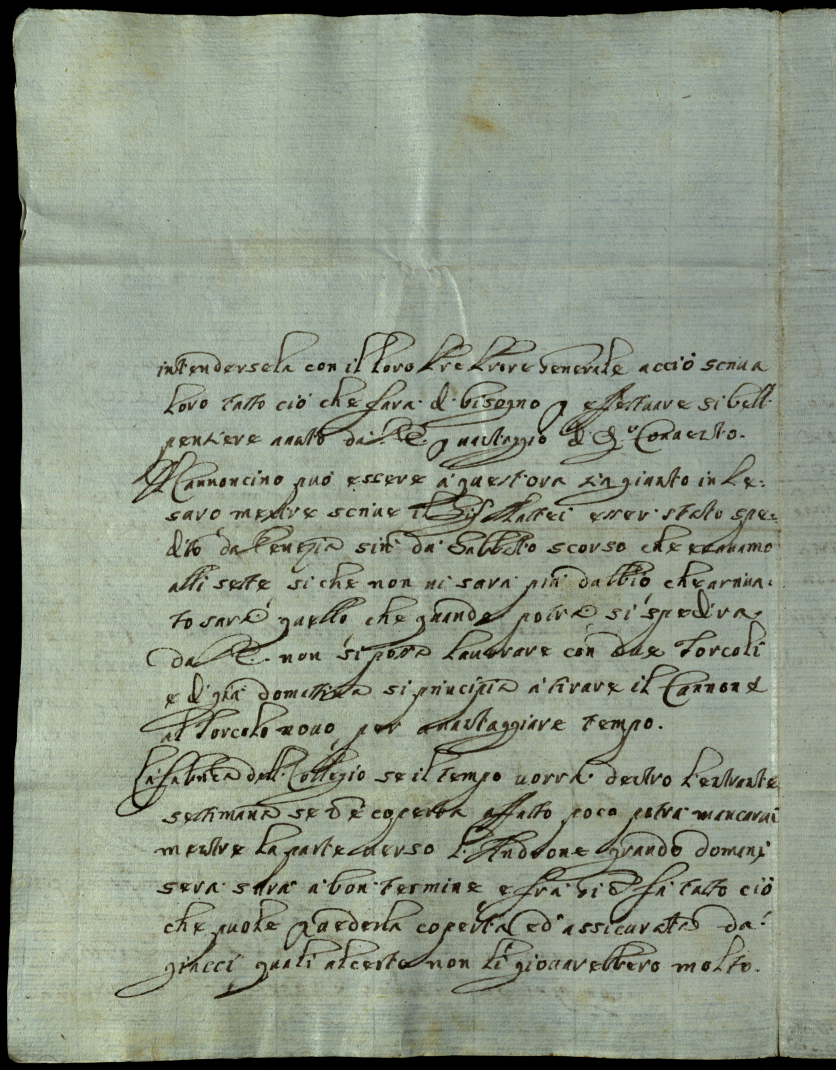 intendersela con il loro Pre Pñre Generale acciò scriua
loro tutto ciò che sara di bisogno p effettuare si bell
pensiere auuto da p uantaggio di q.o Conuento.
Il Cannoncino può essere a quest'ora già gionto in Pe:
saro mentre scriue il Sig.r Mattei esser stato spe:
dito da Venezia sin da Sabbato scorso che erauamo
alli sette si che non ui sara più dubbio che arriua:
to sarà quello che quando potrà si spedirà,
da non si possa lauorare con due Torcoli
e di già domattina si principia a tirare il Cannone
al Torcolo nouo per auantaggiare tempo.
La fabrica dell Collegio se il tempo uorra dentro l'entrante
settimana se non è coperta affatto poco potrà mancarui
mentre la parte uerso l'Androne grando domani
sera sarà a bon termine e frà si fa tutto ciò
che puole p uederla coperta ed'assicurata da'
giacci quali al certo non li giouarebbero molto.